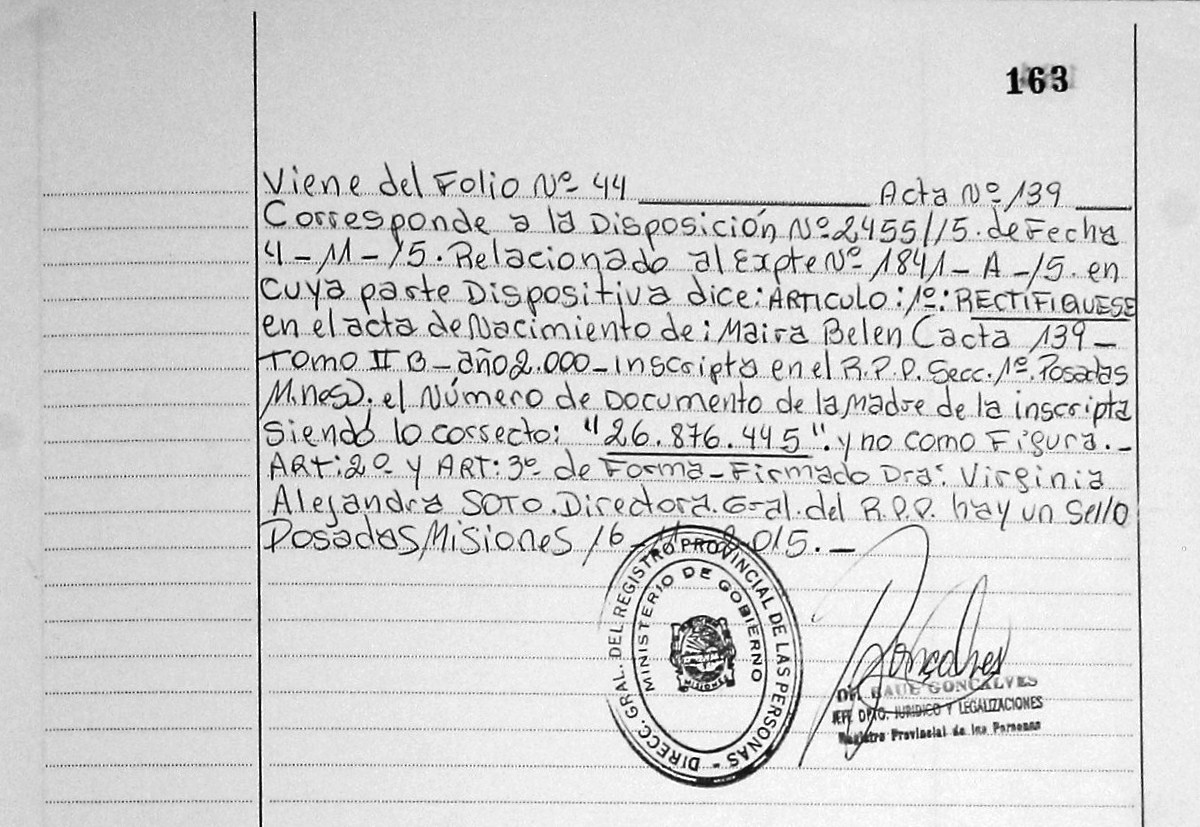 163
Viene del Folio Nº 44 Acta Nº 139
Corresponde a la Disposición Nº 2455/15. de Fecha
4-11-15. Relacionado al Expte Nº 1841-A-15. en
cuya parte Dispositiva dice: ARTICULO: 1º: RECTIFIQUESE
en el acta de Nacimiento de: Maira Belen (acta 139-
Tomo II B- año 2.000- inscripta en el R.P.P. Secc. 1º. Posadas
Mnes). el Número de Documento de la madre de la inscripta
Siendo lo correcto: "26.876.445". y no como Figura.-
ART: 2º y ART: 3º de Forma- Firmado Dra: Virginia
Alejandra SOTO. Directora. Gral. del R.P.P. hay un Sello
Posadas, Misiones 16-11-2.015.-
DIRECC. GRAL. DEL REGISTRO PROVINCIAL DE LAS PERSONAS -
MINISTERIO DE GOBIERNO
MISIONES
Goncalves
Dr. RAUL GONCALVES
JEFE DPTO. JURIDICO Y LEGALIZACIONES
Registro Provincial de las Personas